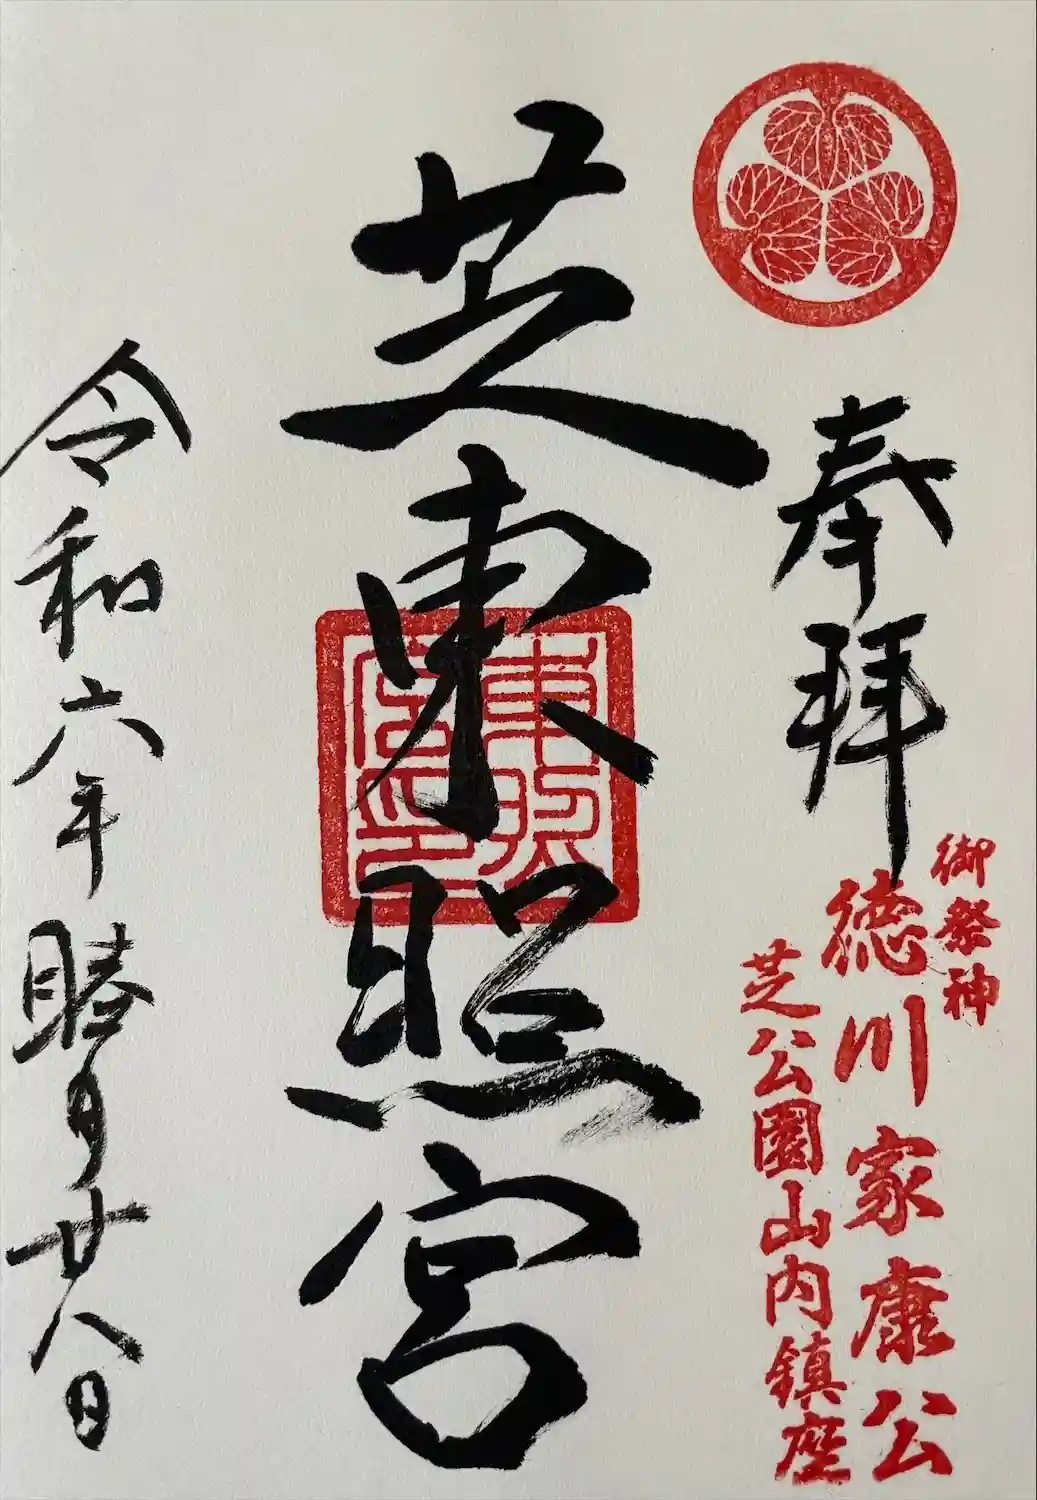 奉拝
御祭神
徳川家康公
芝公園山内鎮座
芝東照宮
東照宮印
令和六年睦月廿八日